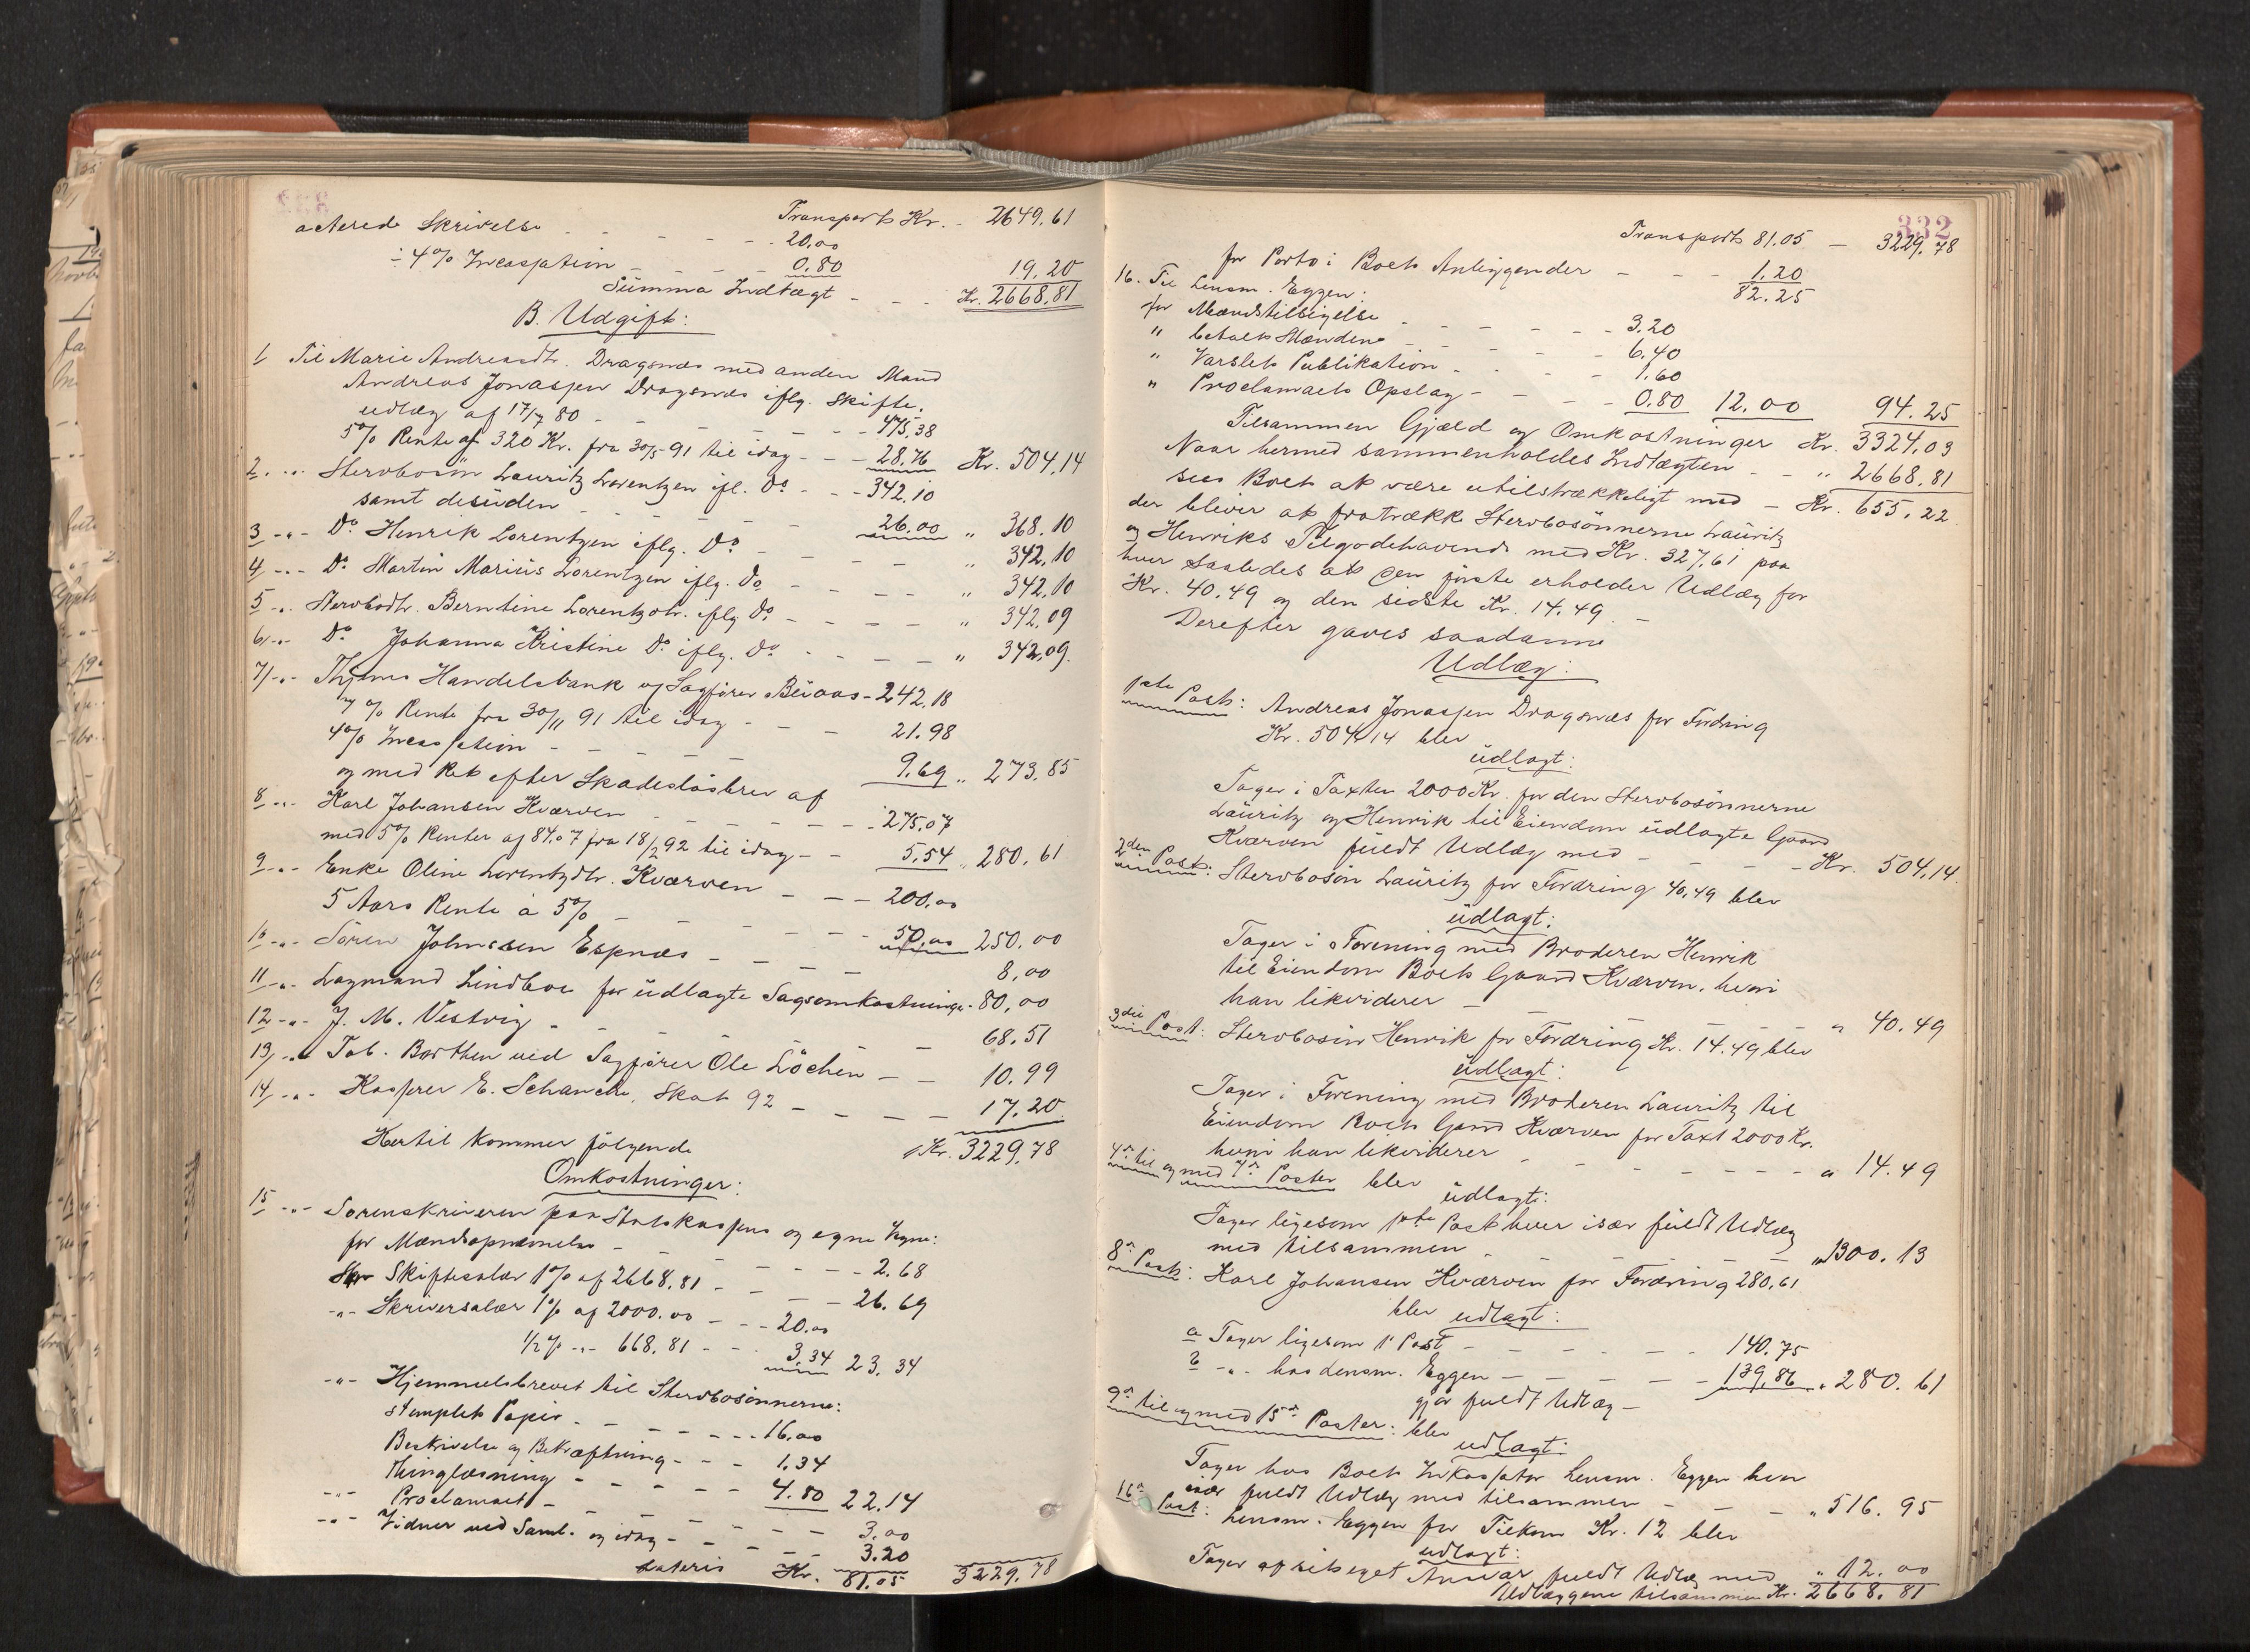 Transport Kr. - 2649.61
acterede Skrivelse - - - - - - 20.00
÷ 4% Incassation - - - 0.80 19.20
Summa Indtægt - - - Kr. 2668.81
B. Udgift:
1 Til Marie Andreasdtr. Dragsnæs med anden Mand
Andreas Jonassen Dragsnæs iflg. Skifte-
udlæg af 17/7 80 - - - - - - - 475,38
5% Rente af 320 Kr. fra 30/5 91 til idag - - - 28.76 Kr. 504,14
2. -"- Stervbosön Lauritz Lorentzen ifl. Do - - - 342.10
samt desuden - - - - - 26.00 " 368.10
3 -"- Do Henrik Lorentzen iflg. Do - - - " 342.10
4 -"- Do Martin Marius Lorentzen iflg. do - - - - " 342,10
5 -"- Stervbodtr. Berntine Lorentzdtr. iflg Do - - - - " 342,09
6 -"- Do Johanna Kristine Do iflg. Do - - - - " 342,09.
7/ -"- Thjems Handelsbank v/ Sagfører Buaas - 242.18
7% Rente fra 30/11 91 til idag - - - 21.98
4% Incassation - - - - - 9.69 " 273.85
og med Ret efter Skadesløsbrev af
8 -"- Karl Johansen Kværven - - - - - - 275,07
med 5% Renter af 84,07 fra 18/2 92 til idag - - 5.54 " 280.61
9 -"- Enke Oline Lorentzdtr. Kværven - - - 200,00
5 Aars Rente a 5% - - - - - - 50,00 250.00
10 -"- Sören Johnsen Espnæs - - - - 8,00
11 -"- Lagmand Lindboe for udlagte Sagsomkostninger - 80,00
12 -"- J. M. Vestvig - - - - - - 68.51
13/ -"- Tob. Bärthen ved Sagfører Ole Löchen - - 10.99
14/ -"- Kasper E. Schanche, Skat 92 - - - - 17.20
Hertil kommer følgende Kr. 3229,78
Omkostninger:
15 -"- Sorenskriveren paa Statskassens og egne Vegne:
for Mandsopnævnelse - - - - - - 2.68
Skiftesalær 1% af 2668.81 - - - - 26.69
-"- Skriversalær 1% af 2000.00 - - - 20.00
1/2% -"- 668.81 - - - 3.34 23.34
-"- Hjemmelsbrevet til Stervbosönnerne:
stemplet Papir - - - - - - 16.00
Beskrivelse og Bekræftning - - - 1.34
Thinglæsning - - - - - - 4.80 22.14
-"- Proclamaet - - - - - - 3.00
-"- Vidner ved Saml. og idag - - - - 3.20
Lateris Kr. 81.05 3229.78
332
Transport 81.05 - 3229,78
for Porto i Boets Anliggender - - - 1.20
82.25
16. Til Lensm. Eggen:
for Mændstilsigelse - - - - - - 3.20
" betalt Mændene - - - - - - 6.40
" Varslets Publikation - - - - 1.60
" Proclamaets Opslag - - - - 0.80 12.00 94.25
Tilsammen Gjæld og Omkostninger Kr. 3324,03
Naar hermed sammenholdes Indtægten - - " 2668.81
sees Boet at være utilstrækkeligt med - Kr. 655,22
der bliver at fratrække Stervbosönnerne Lauritz
og Henriks Tilgodehavende med Kr. 327,61 paa
hver saaledes at den første erholder Udlæg for
Kr. 40.49 og den sidste Kr. 14.49. -
Derefter gaves saadanne
Udlæg:
1ste Post: Andreas Jonassen Dragsnæs for Fordring
Kr. 504,14 blev
udlagt:
Tager i Taxten 2000 Kr. for den Stervbosönnerne
Lauritz og Henrik til Eiendom udlagte Gaard
Kværven fuldt Udlæg med - - - - Kr. 504,14.
2den Post: Stervbosön Lauritz for Fordring 40,49 blev
udlagt:
Tager i Forening med Broderen Henrik
til Eiendom Boets Gaard Kværven, hvori
han likviderer - - - - - - " 40.49
3die Post: Stervbosön Henrik for Fordring Kr. 14.49 blev
udlagt:
Tager i Forening med Broderen Lauritz til
Eiendom Boets Gaard Kværven for Taxt 2000 Kr.
hvori han likviderer - - - - - - - " 14.49
4de til og med 7de Poster blev
udlagt:
Tager ligesom 1ste Post hver især fuldt Udlæg
med tilsammen - - - - - " 1300.13
8de Post: Karl Johansen Kværven for Fordring 280,61
blev udlagt:
a Tager ligesom 1' Post - - - - - 140.75
b -"- hos Lensm. Eggen - - - - - 139,86 " 280.61
gjør fuldt Udlæg -
9de til og med 15de Poster: blev
udlagt:
Tager hos Boets Inkassator Lensm. Eggen hver
især fuldt Udlæg med tilsammen - - - " 516.95
16de Post: Lensm. Eggen for Tilkom Kr. 12 blev
udlagt:
Tager af sit eget Ansvar fuldt Udlæg med " 12.00
Udlæggene tilsammen Kr. 2668.81